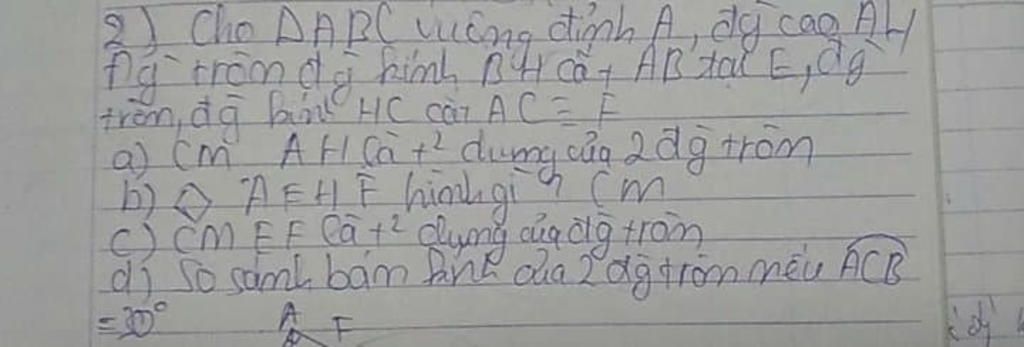 2) Cho ΔABC vuông đỉnh A, đg̀ cao AH
Đg̀ tròn đg̀ kính BH cắt AB tại E, đg̀
tròn, đg̀ kính HC cắt AC = F
a) Cm AH là t² dung của 2 đg̀ tròn
b) ◇ AEHF hình gì? Cm
c) Cm EF là t² dung của đg̀ tròn
d) So sánh bán kính của 2 đg̀ tròn nếu ACB
= 30°
A F